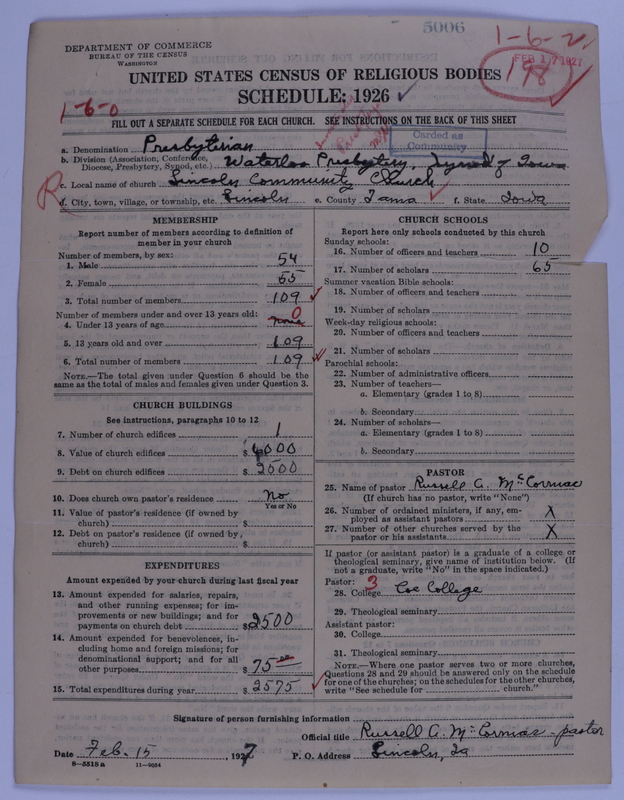 5006
1-6-2
DEPARTMENT OF COMMERCE
BUREAU OF THE CENSUS
WASHINGTON
FEB 17 1927
198
UNITED STATES CENSUS OF RELIGIOUS BODIES
SCHEDULE: 1926
1-6-0
FILL OUT A SEPARATE SCHEDULE FOR EACH CHURCH. SEE INSTRUCTIONS ON THE BACK OF THIS SHEET
Carded as
Community
a. Denomination Presbyterian
b. Division (Association, Conference, Diocese, Presbytery, Synod, etc.) Waterloo Presbytery, Synod of Iowa
R
c. Local name of church Lincoln Community Church
d. City, town, village, or township, etc. Lincoln e. County Tama f. State Iowa
MEMBERSHIP
Report number of members according to definition of
member in your church
Number of members, by sex:
1. Male 54
2. Female 55
3. Total number of members 109
Number of members under and over 13 years old:
4. Under 13 years of age none 0
5. 13 years old and over 109
6. Total number of members 109
NOTE.—The total given under Question 6 should be
same as the total of males and females given under Question 3.
CHURCH BUILDINGS
See instructions, paragraphs 10 to 12
7. Number of church edifices 1
8. Value of church edifices $ 4000
9. Debt on church edifices $ 2000
10. Does church own pastor's residence No
Yes or No
11. Value of pastor's residence (if owned by
church) $
12. Debt on pastor's residence (if owned by
church) $
EXPENDITURES
Amount expended by your church during last fiscal year
13. Amount expended for salaries, repairs,
and other running expenses; for im-
provements or new buildings; and for
payments on church debt $ 2500
14. Amount expended for benevolences, in-
cluding home and foreign missions; for
denominational support; and for all
other purposes $ 75
15. Total expenditures during year $ 2575
CHURCH SCHOOLS
Report here only schools conducted by this church
Sunday schools:
16. Number of officers and teachers 10
17. Number of scholars 65
Summer vacation Bible schools:
18. Number of officers and teachers
19. Number of scholars
Week-day religious schools:
20. Number of officers and teachers
21. Number of scholars
Parochial schools:
22. Number of administrative officers
23. Number of teachers—
a. Elementary (grades 1 to 8)
b. Secondary
24. Number of scholars—
a. Elementary (grades 1 to 8)
b. Secondary
PASTOR
25. Name of pastor Russell A. McCormac
(If church has no pastor, write "None")
26. Number of ordained ministers, if any, em-
ployed as assistant pastors X
27. Number of other churches served by the
pastor or his assistants X
If pastor (or assistant pastor) is a graduate of a college or
theological seminary, give name of institution below. (If
not a graduate, write "No" in the space indicated.)
Pastor: 3
28. College Coe College
29. Theological seminary
Assistant pastor:
30. College
31. Theological seminary
NOTE.—Where one pastor serves two or more churches,
Questions 28 and 29 should be answered only on the schedule
for one of the churches; on the schedules for the other churches,
write "See schedule for church."
Signature of person furnishing information
Official title Russell A. McCormac - pastor
Date Feb. 15, 1927 P. O. Address Lincoln, Ia
8—5518a 11—9054